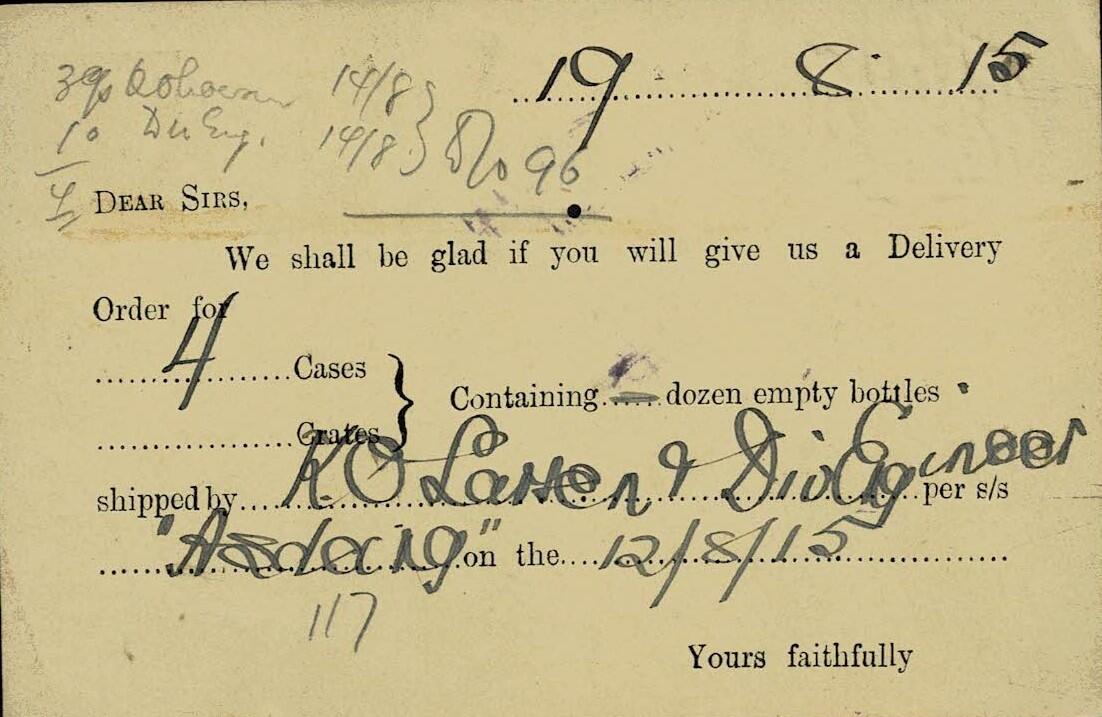 19 8 15
14/8
10 Div Eng. 14/8 } No 96
4
DEAR SIRS,
We shall be glad if you will give us a Delivery
Order for
4 Cases
Crates } Containing – dozen empty bottles
shipped by K O Larsen & Div Engineer per s/s
" " on the 12/8/15
117
Yours faithfully